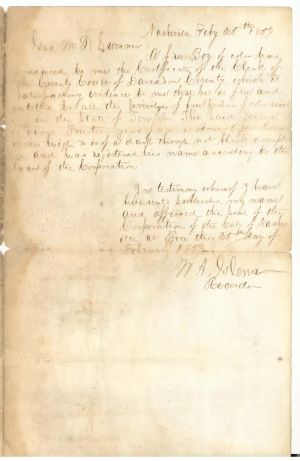 Nashville Feby 26th 18
Geo. W. D. Sumner
A free Boy of color having
produced by me the Certificate of the Clerk of
the County Court of Davidson County which is
satisfactory evidence to me that he is free and
entitled to all the privileges of free persons of color
in the State of Tennessee The said
years of age
is of a dark though not black complex
ion and was registered his name according to the
laws of the Corporation
In testimony whereof I have
hereunto subscribed my name
and affixed the seal of the
Corporation of the City of Nash
ville at office this 26th day of
February 18
W. A.
Recorder